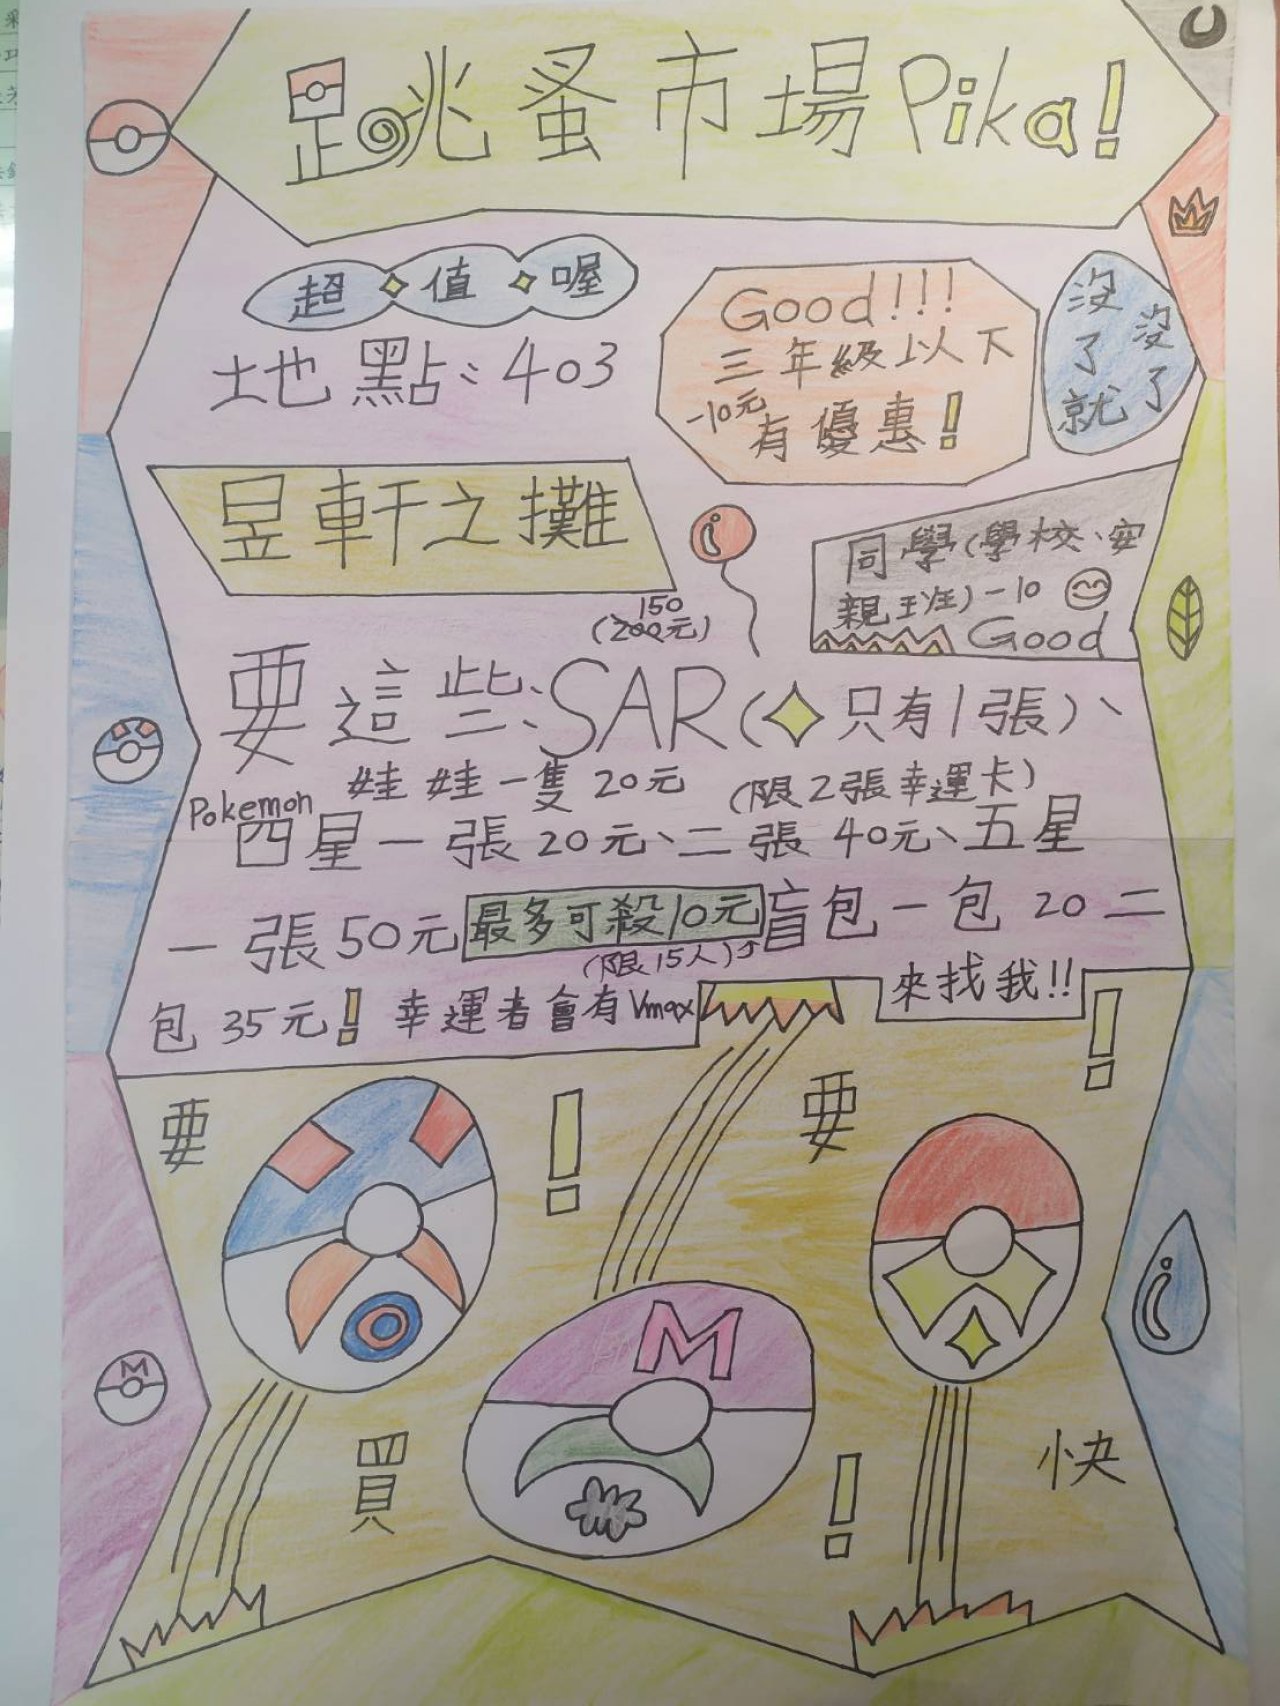 跳蚤市場Pika!
超值喔
地點:403
Good!!!
三年級以下
-10元
有優惠!
沒了就
沒了
昱軒之攤
同學(學校、安
親班)-10
Good
150
(200元)
要這些、SAR(只有1張)、
娃娃一隻20元 (限2張幸運卡)
Pokemon
四星一張20元、二張40元、五星
一張50元最多可殺10元盲包一包20二
(限15人)
包35元!幸運者會有Vmax
來找我!!
!
要
!
要
M
M
買
!
快